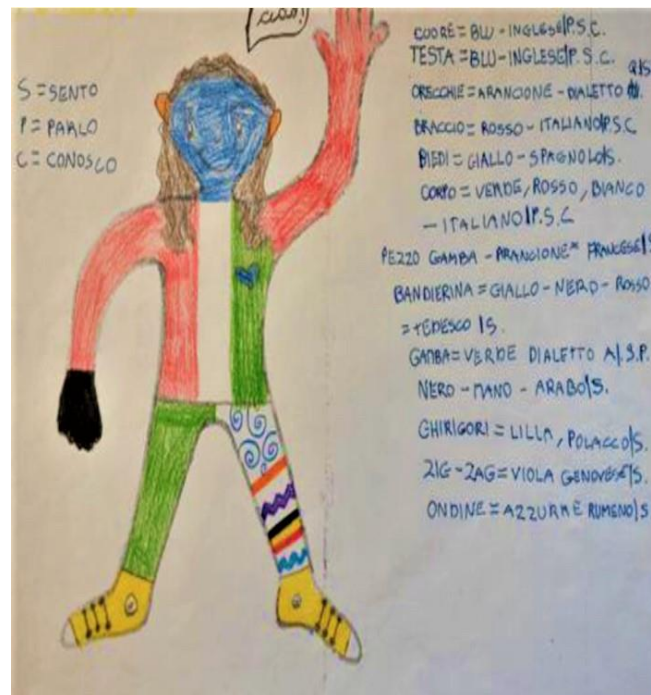 ciao!
S = SENTO
P = PARLO
C = CONOSCO
CUORE = BLU - INGLESE/P.S.C.
TESTA = BLU - INGLESE/P.S.C.
ORECCHIE = ARANCIONE - DIALETTO
BRACCIO = ROSSO - ITALIANO/P.S.C
PIEDI = GIALLO - SPAGNOLO/S.
CORPO = VERDE, ROSSO, BIANCO
- ITALIANO/P.S.C
PEZZO GAMBA - ARANCIONE* FRANCESE/S
BANDIERINA = GIALLO - NERO - ROSSO
= TEDESCO/S.
GAMBA = VERDE DIALETTO A/.S.P.
NERO - MANO - ARABO/S.
GHIRIGORI = LILLA, POLACCO/S.
ZIG-ZAG = VIOLA GENOVESE/S.
ONDINE = AZZURRE RUMENO/S